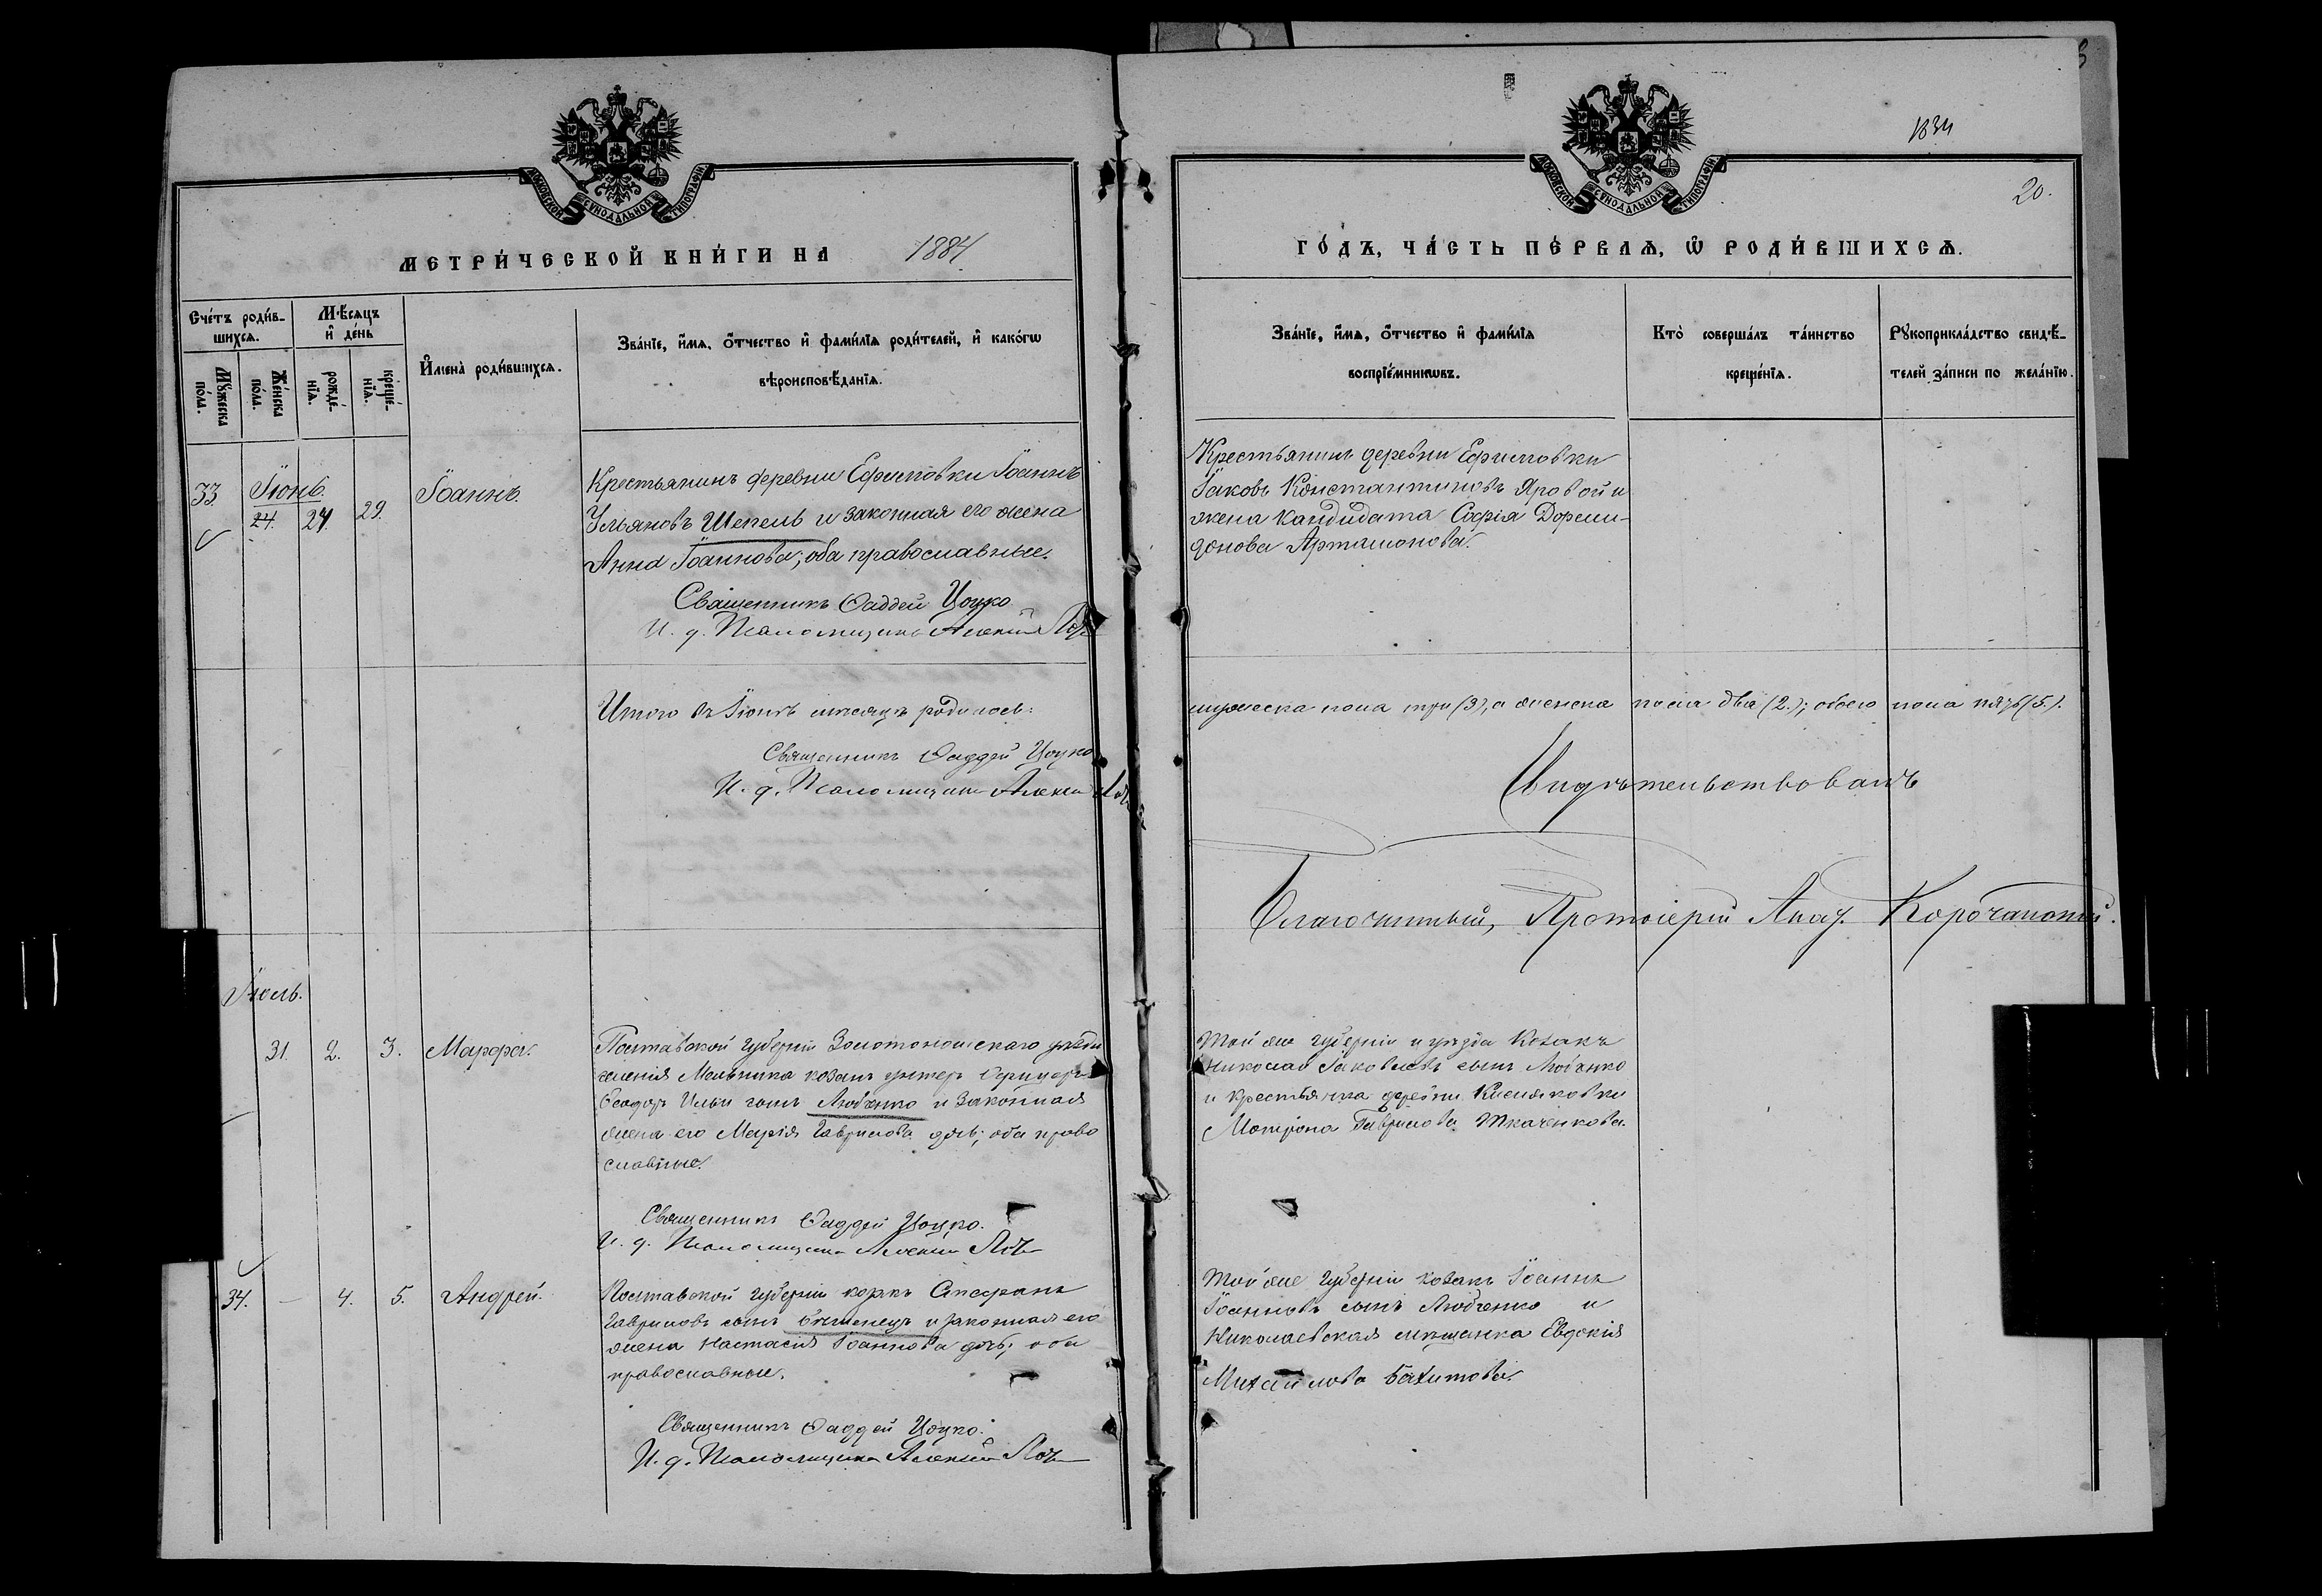 МОСКОВСКОЙ СѴНОДАЛЬНОЙ ТИПОГРАФІИ
МЕТРИ́ЧЕСКОЙ КНИ́ГИ НА 1884
Сче́тъ роди́в-
шихсѧ.
Мѣ́сѧцъ
и҆ де́нь
Мꙋ́жеска
по́ла.
Же́нска
по́ла.
рожде́-
нїѧ.
креще́-
нїѧ.
И҆мена̀ роди́вшихсѧ.
Зва́нїе, и҆́мѧ, ѻ҆́тчество и҆ фами́лїѧ роди́телей, и҆ како́гѡ
вѣроисповѣ́данїѧ.
33.
Іюнь.
24.
24.
29.
Іоаннъ
Крестьянинъ деревни Ефимовки Іоаннъ
Ульяновъ Шепель и законная его жена
Анна Іоаннова; оба православные.
Священникъ Ѳаддей Цоуко
И. д. Псаломщика Алексій
Итого въ Іюнѣ мѣсяцѣ родилось:
Священникъ Ѳаддей Цоуко
И. д. Псаломщика Алексій
Іюль.
31.
2.
3.
Марѳа.
Полтавской губерніи Золотоношскаго уѣзда
селенія Мельника козакъ унтеръ Офицеръ
Ѳеодоръ Ильи сынъ Любченко и законная
жена его Марія Гаврилова дочь; оба право
славные.
Священникъ Ѳаддей Цоуко.
И. д. Псаломщика Алексій
34.
—
4.
5.
Андрей.
Полтавской губерніи козакъ Стефанъ
Гавриловъ сынъ и законная его
жена Настасія Іоаннова дочь; оба
православные.
Священникъ Ѳаддей Цоуко.
И. д. Псаломщика Алексій
МОСКОВСКОЙ СѴНОДАЛЬНОЙ ТИПОГРАФІИ
1834
20.
ГО́ДЪ, ЧА́СТЬ ПЕ́РВАѦ, Ѡ҆ РОДИ́ВШИХСѦ.
Зва́нїе, и҆́мѧ, ѻ҆́тчество и҆ фами́лїѧ
воспрїе́мникѡвъ.
Кто̀ соверша́лъ та́инство
креще́нїѧ.
Рꙋкоприкла́дство свидѣ́-
телей за́писи по жела́нїю.
Крестьянинъ деревни Ефимовки
Іаковъ Константиновъ Яровой и
жена кандидата Софія Дорми-
донова Артамонова.
мужеска пола три (3), а женска пола два (2.); обоего пола пять (5.).
Свидѣтельствовалъ
Благочинный, Протоіерей Корочанскій.
Той же губерніи и уѣзда Козакъ
Николай Іаковлевъ сынъ Любченко
и крестьянка деревни Кисляковки
Матрона Гаврилова Ткаченкова.
Той же губерніи козакъ Іоаннъ
Іоанновъ сынъ Любченко и
Николаевская мѣщанка Евдокія
Михайлова